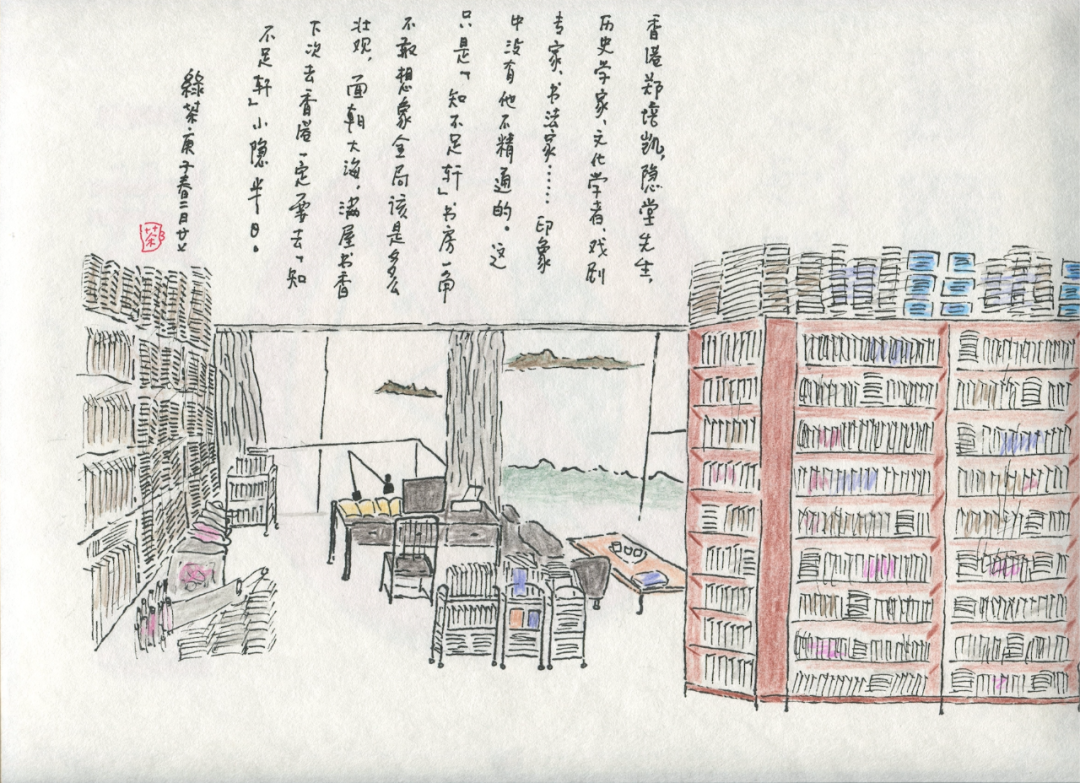 香港郑培凯,隐堂先生,
历史学家、文化学者、戏剧
专家、书法家……印象
中没有他不精通的。这
只是「知不足轩」书房一角
不敢想象全局该是多么
壮观,面朝大海,满屋书香
下次去香港一定要去「知
不足轩」小隐半日。
綠茶·庚子春二月廿七